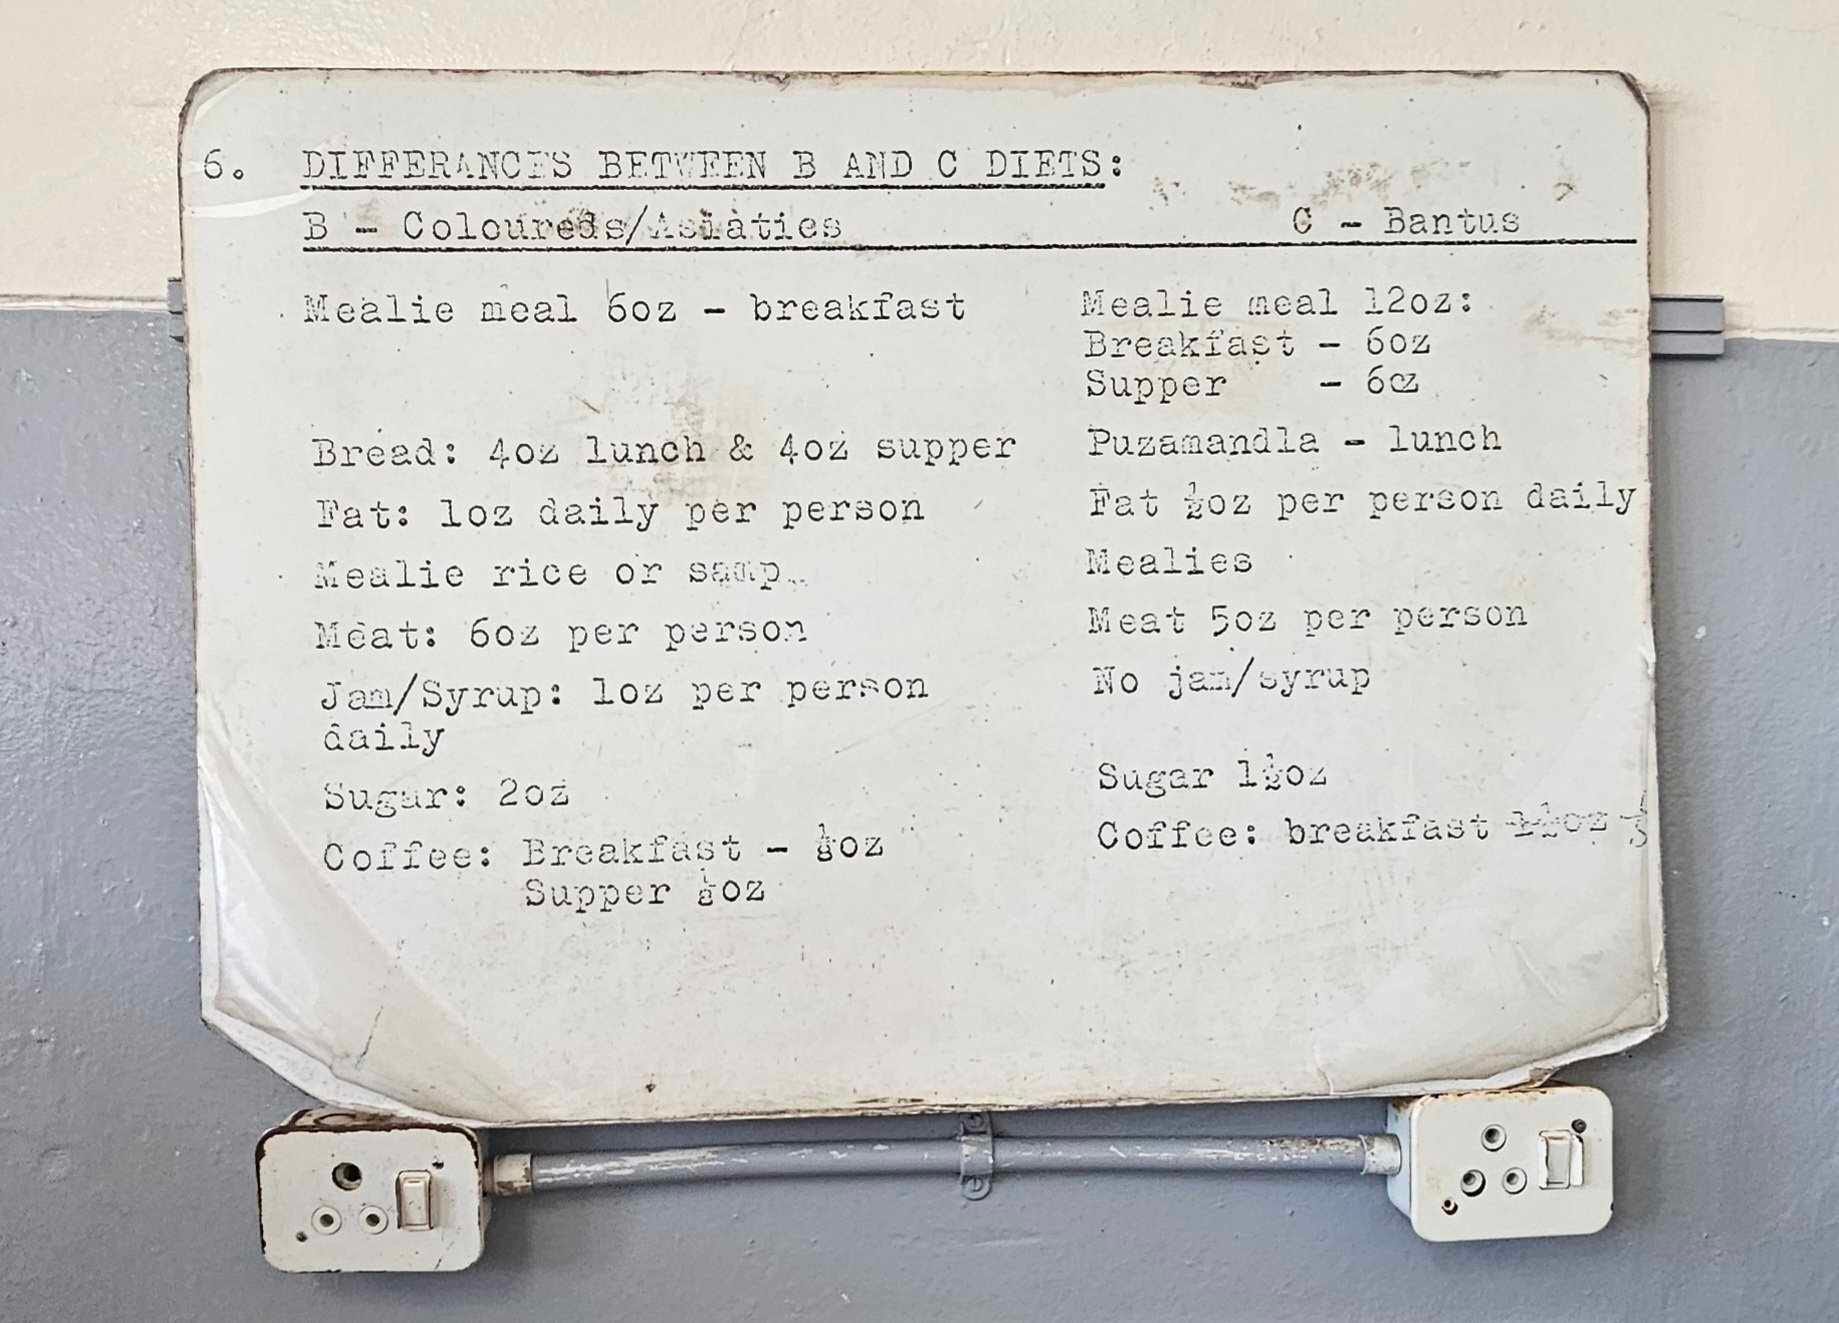 6. DIFFERANCES BETWEEN B AND C DIETS:
B - Coloureds/Asiaties
C - Bantus
Mealie meal 6oz - breakfast
Mealie meal 12oz:
Breakfast - 6oz
Supper - 6oz
Bread: 4oz lunch & 4oz supper
Puzamandla - lunch
Fat: 1oz daily per person
Fat ½oz per person daily
Mealie rice or samp
Mealies
Meat: 6oz per person
Meat 5oz per person
Jam/Syrup: 1oz per person
daily
No jam/syrup
Sugar: 2oz
Sugar 1½oz
Coffee: Breakfast - ⅛oz
Supper ⅛oz
Coffee: breakfast